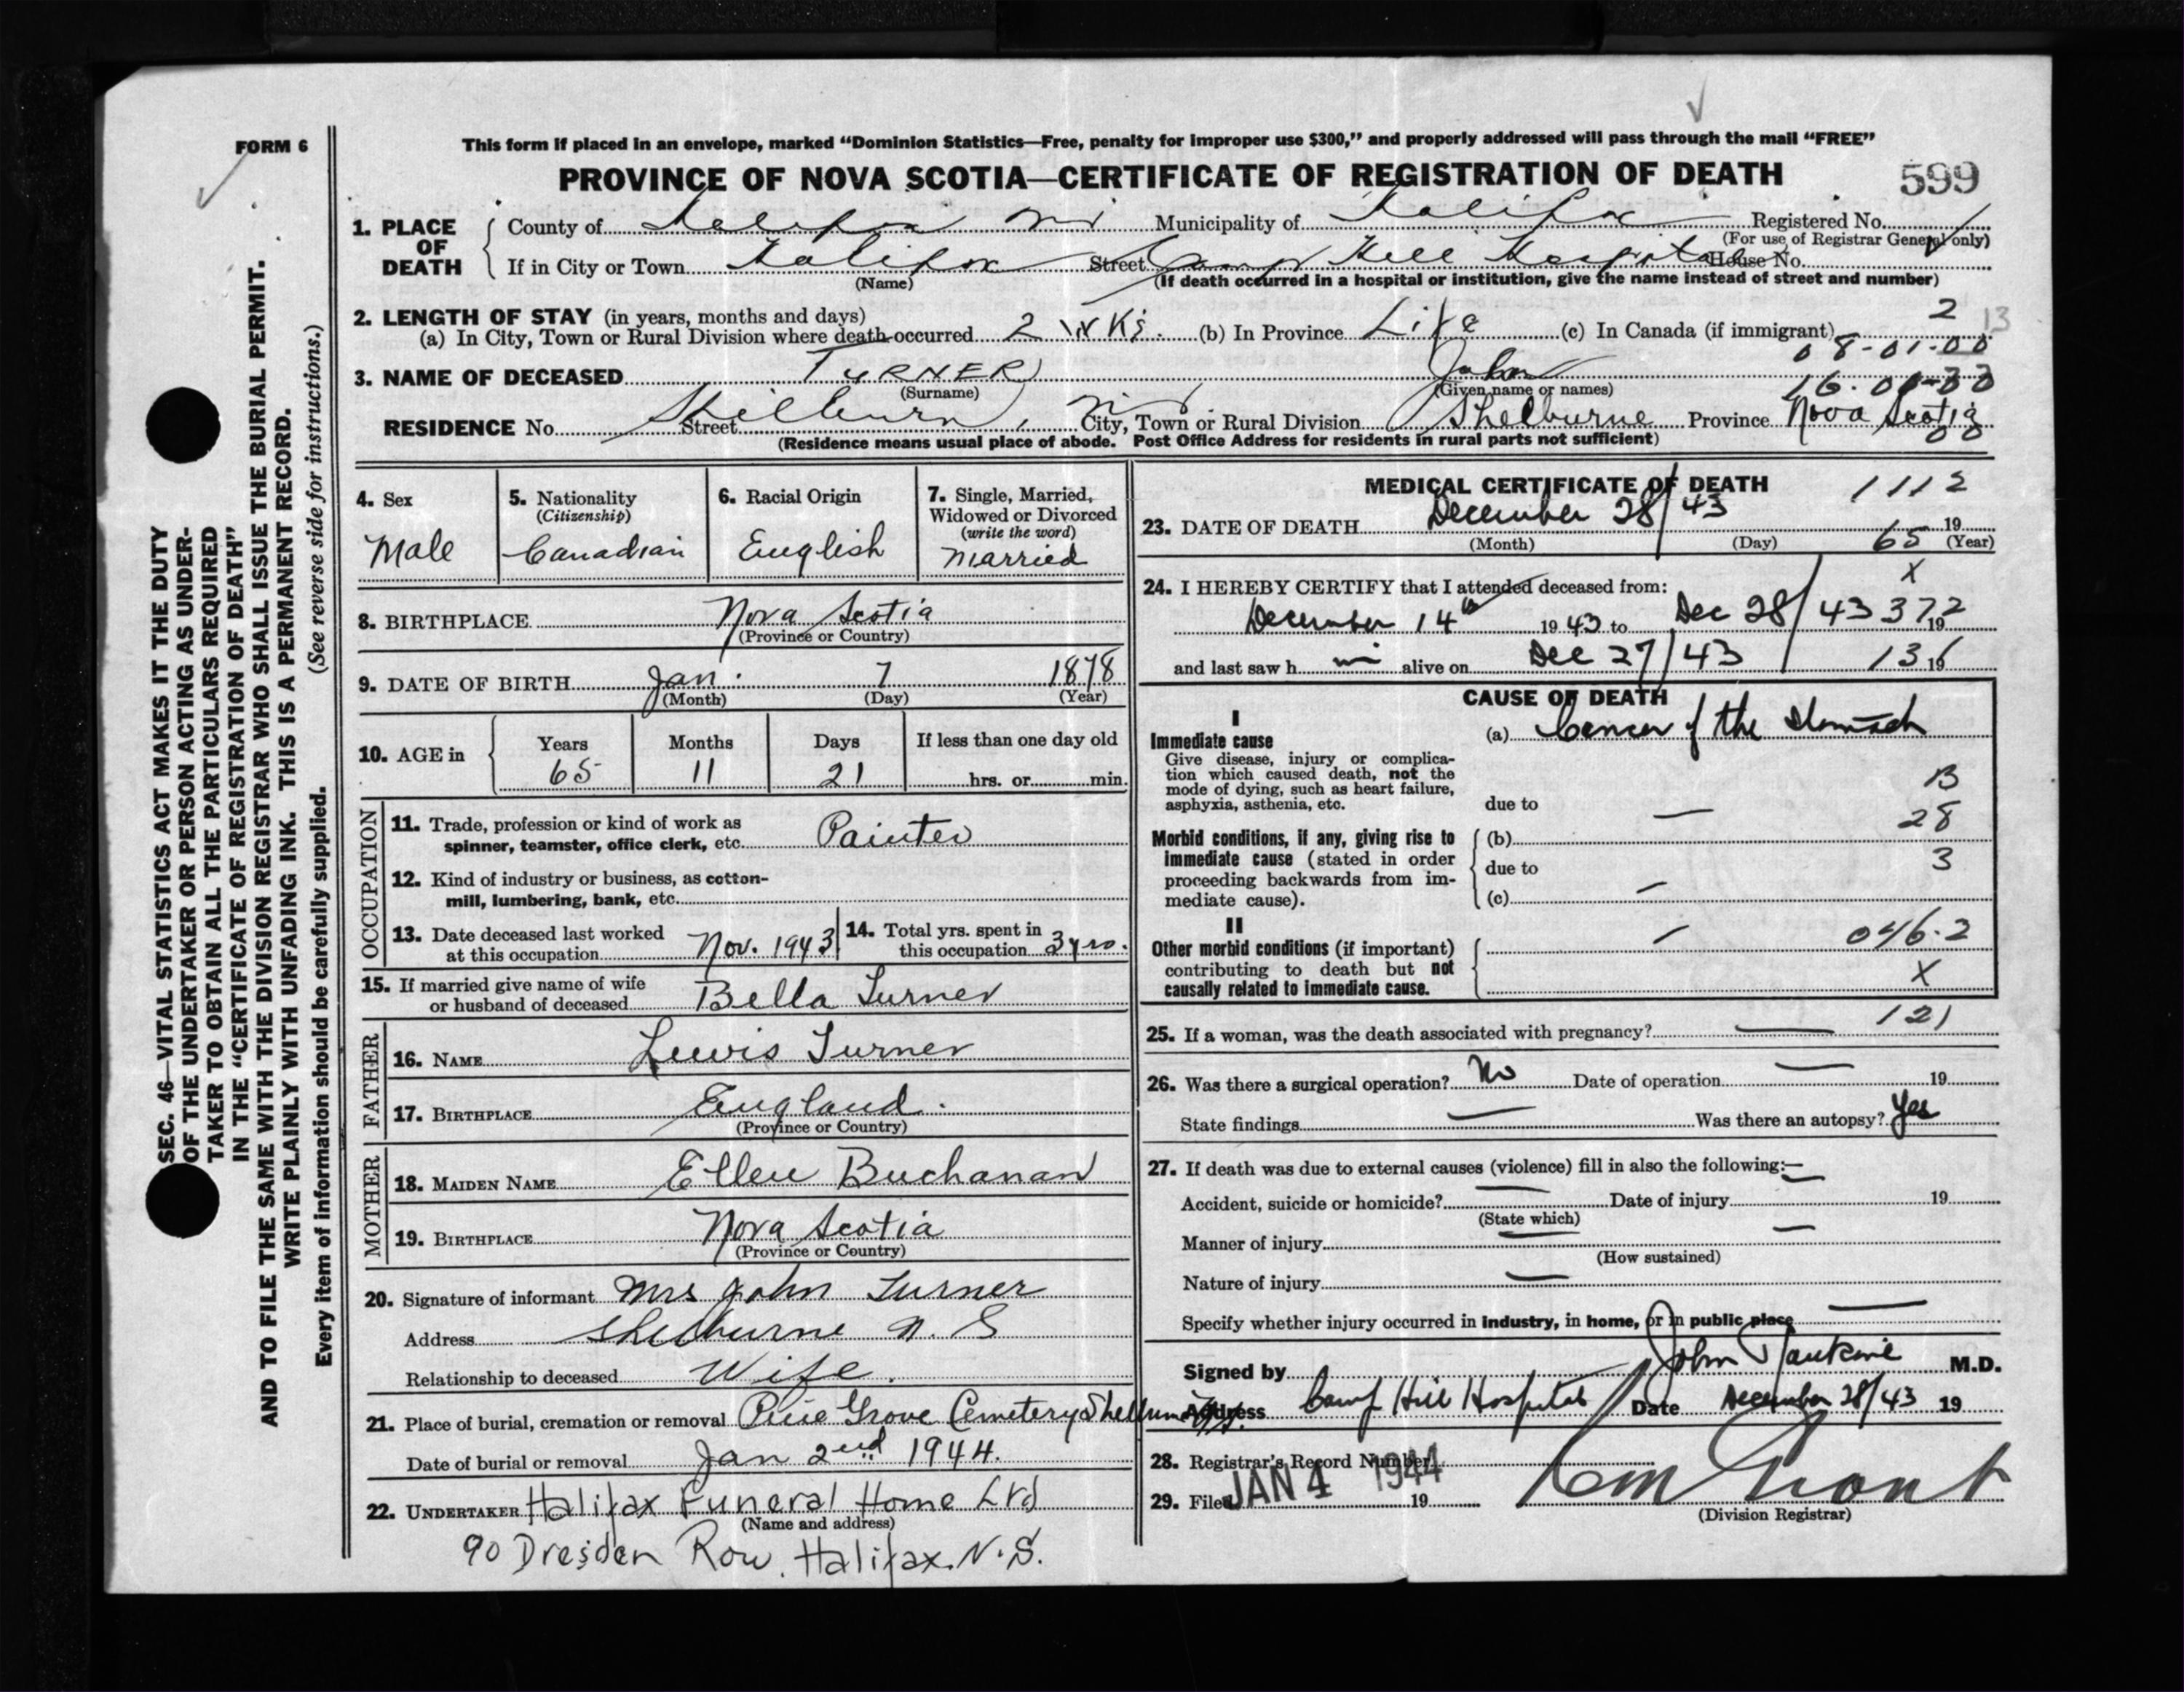 FORM 6
This form if placed in an envelope, marked “Dominion Statistics—Free, penalty for improper use $300,” and properly addressed will pass through the mail “FREE”
PROVINCE OF NOVA SCOTIA—CERTIFICATE OF REGISTRATION OF DEATH 599
1. PLACE OF DEATH
County of Halifax Municipality of Halifax Registered No.
(For use of Registrar General only)
If in City or Town Halifax Street Camp Hill Hospital House No.
(Name) (If death occurred in a hospital or institution, give the name instead of street and number)
2. LENGTH OF STAY (in years, months and days) 2 13
(a) In City, Town or Rural Division where death occurred 2 Wks. (b) In Province Life (c) In Canada (if immigrant)
08-01-00
3. NAME OF DECEASED TURNER John
(Surname) (Given name or names)
RESIDENCE No. Street City, Town or Rural Division Shelburne Province Nova Scotia
00
(Residence means usual place of abode. Post Office Address for residents in rural parts not sufficient)
4. Sex
Male
5. Nationality
(Citizenship)
Canadian
6. Racial Origin
English
7. Single, Married,
Widowed or Divorced
(write the word)
Married
8. BIRTHPLACE Nova Scotia
(Province or Country)
9. DATE OF BIRTH Jan. 7 1878
(Month) (Day) (Year)
10. AGE in
Years Months Days If less than one day old
65 11 21 hrs. or min.
OCCUPATION
11. Trade, profession or kind of work as
spinner, teamster, office clerk, etc. Painter
12. Kind of industry or business, as cotton-
mill, lumbering, bank, etc.
13. Date deceased last worked
at this occupation Nov. 1943
14. Total yrs. spent in
this occupation 3 yrs.
15. If married give name of wife
or husband of deceased Bella Turner
FATHER
16. NAME Lewis Turner
17. BIRTHPLACE England.
(Province or Country)
MOTHER
18. MAIDEN NAME Ellen Buchanan
19. BIRTHPLACE Nova Scotia
(Province or Country)
20. Signature of informant Mrs John Turner
Address Shelburne N. S
Relationship to deceased Wife.
21. Place of burial, cremation or removal Pine Grove Cemetery Shelburne N.S.
Date of burial or removal Jan 2nd 1944.
22. UNDERTAKER Halifax Funeral Home Ltd
(Name and address)
90 Dresden Row. Halifax. N.S.
MEDICAL CERTIFICATE OF DEATH 1112
23. DATE OF DEATH December 28/43 19
(Month) (Day) 65 (Year)
X
24. I HEREBY CERTIFY that I attended deceased from:
December 14th 1943 to Dec 28/43 372 19
and last saw h im alive on Dec 27/43 19
CAUSE OF DEATH
I
Immediate cause
Give disease, injury or complica-
tion which caused death, not the
mode of dying, such as heart failure,
asphyxia, asthenia, etc.
(a) Cancer of the Stomach
due to —
Morbid conditions, if any, giving rise to
immediate cause (stated in order
proceeding backwards from im-
mediate cause).
28
(b)
3
due to
(c) —
II
Other morbid conditions (if important)
contributing to death but not
causally related to immediate cause.
046.2
X
25. If a woman, was the death associated with pregnancy? — 121
26. Was there a surgical operation? No Date of operation — 19
State findings — Was there an autopsy? Yes
27. If death was due to external causes (violence) fill in also the following:—
Accident, suicide or homicide? — Date of injury — 19
(State which)
Manner of injury —
(How sustained)
Nature of injury —
Specify whether injury occurred in industry, in home, or in public place —
Signed by John M.D.
Address Camp Hill Hospital Date December 28/43 19
28. Registrar's Record Number
29. Filed JAN 4 1944 19
(Division Registrar)
SEC. 46—VITAL STATISTICS ACT MAKES IT THE DUTY
OF THE UNDERTAKER OR PERSON ACTING AS UNDER-
TAKER TO OBTAIN ALL THE PARTICULARS REQUIRED
IN THE “CERTIFICATE OF REGISTRATION OF DEATH”
AND TO FILE THE SAME WITH THE DIVISION REGISTRAR WHO SHALL ISSUE THE BURIAL PERMIT.
WRITE PLAINLY WITH UNFADING INK. THIS IS A PERMANENT RECORD.
Every item of information should be carefully supplied. (See reverse side for instructions.)